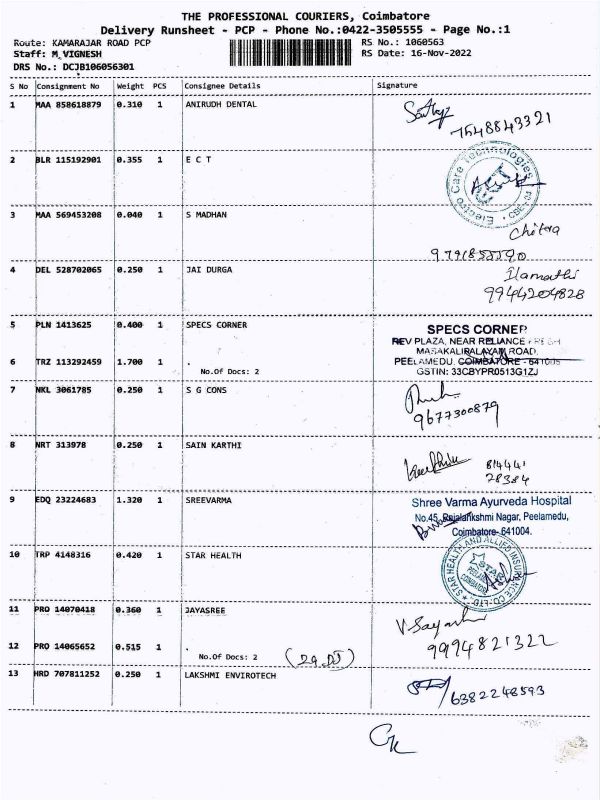 THE PROFESSIONAL COURIERS, Coimbatore
Delivery Runsheet - PCP - Phone No.:0422-3505555 - Page No.:1
Route: KAMARAJAR ROAD PCP RS No.: 1060563
Staff: M VIGNESH RS Date: 16-Nov-2022
DRS No.: DCJB106056301
S No Consignment No Weight PCS Consignee Details Signature
1 MAA 858618879 0.310 1 ANIRUDH DENTAL
7548843321
2 BLR 115192901 0.355 1 E C T
Electro Care Technologies CBE-04
3 MAA 569453208 0.040 1 S MADHAN
Chitra
9791855590
4 DEL 528702065 0.250 1 JAI DURGA
Ilamathi
9944204828
5 PLN 1413625 0.400 1 SPECS CORNER
SPECS CORNER
REV PLAZA, NEAR RELIANCE FRESH
MASAKALIPALAYAM ROAD,
6 TRZ 113292459 1.700 1 .
PEELAMEDU, COIMBATORE - 641005
No.Of Docs: 2
GSTIN: 33CBYPR0513G1ZJ
7 NKL 3061785 0.250 1 S G CONS
9677300879
8 NRT 313978 0.250 1 SAIN KARTHI
Karthik 81444
28384
9 EDQ 23224683 1.320 1 SREEVARMA
Shree Varma Ayurveda Hospital
No.45, Rajalankshmi Nagar, Peelamedu,
Coimbatore- 641004.
10 TRP 4148316 0.420 1 STAR HEALTH
STAR HEALTH AND ALLIED INSURANCE CO. LTD.
STAR
11 PRO 14070418 0.360 1 JAYASREE
9994821322
12 PRO 14065652 0.515 1 .
No.Of Docs: 2
13 HRD 707811252 0.250 1 LAKSHMI ENVIROTECH
6382248593